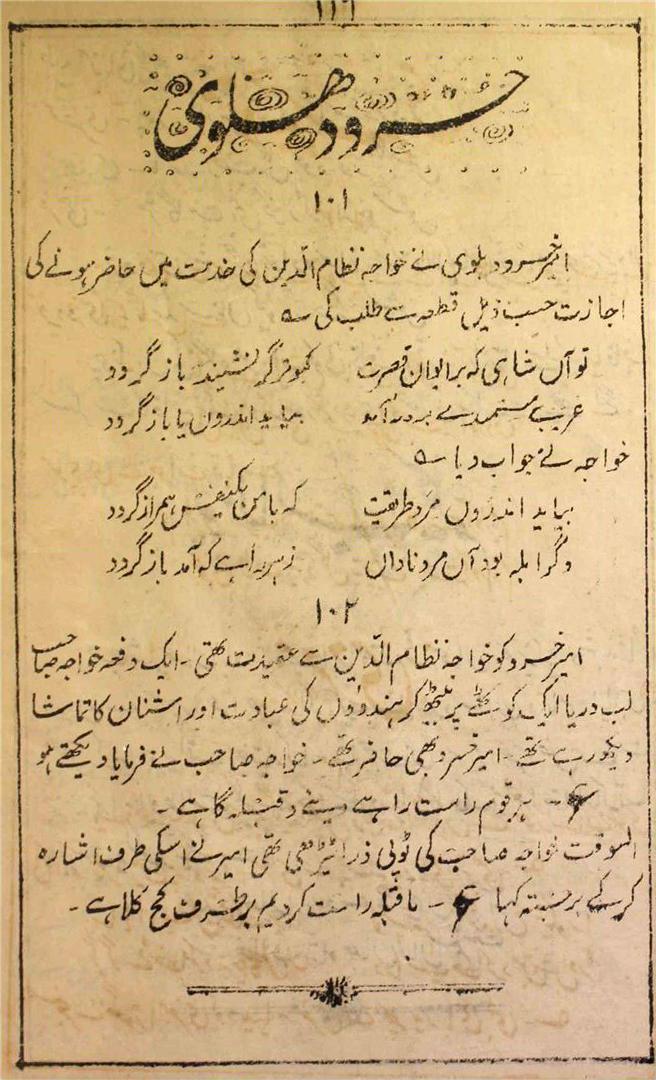 ۱۱۶
خسرو دہلوی
۱۰۱
امیر خسرو دہلوی نے خواجہ نظام الدّین کی خدمت میں حاضر ہونے کی
اجازت حسب ذیل قطعہ سے طلب کی ؎
تو آں شاہی کہ بر ایوان قصرت کبوتر گر نشیند باز گردد
غریب مستمندے بر در آمد بیاید اندروں یا باز گردد
خواجہ نے جواب دیا ؎
بیاید اندروں مرد طریقت کہ با من یکنفس ہمراز گردد
وگر ابلہ بود آں مرد ناداں زہر راہے کہ آمد باز گردد
۱۰۲
امیر خسرو کو خواجہ نظام الدّین سے عقیدت تھی۔ ایک دفعہ خواجہ صاحب
لب دریا ایک کوٹھے پر بیٹھ کر ہندوؤں کی عبادت اور اشنان کا تماشا
دیکھ رہے تھے۔ امیر خسرو بھی حاضر تھے۔ خواجہ صاحب نے فرمایا دیکھتے ہو
ع۔ ہر قوم راست راہے دینے و قبلہ گاہے۔
اسوقت خواجہ صاحب کی ٹوپی ذرا ٹیڑھی تھی امیر نے اسکی طرف اشارہ
کر کے برجستہ کہا ع۔ ما قبلہ راست کردیم بر طرف کج کلاہے۔